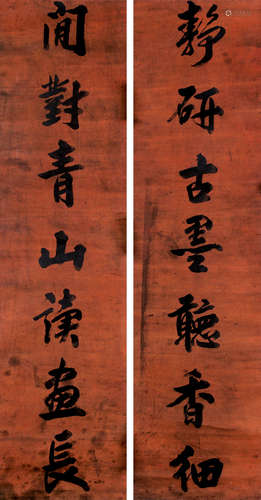 靜研古墨聽香細
閒對青山讀畫長